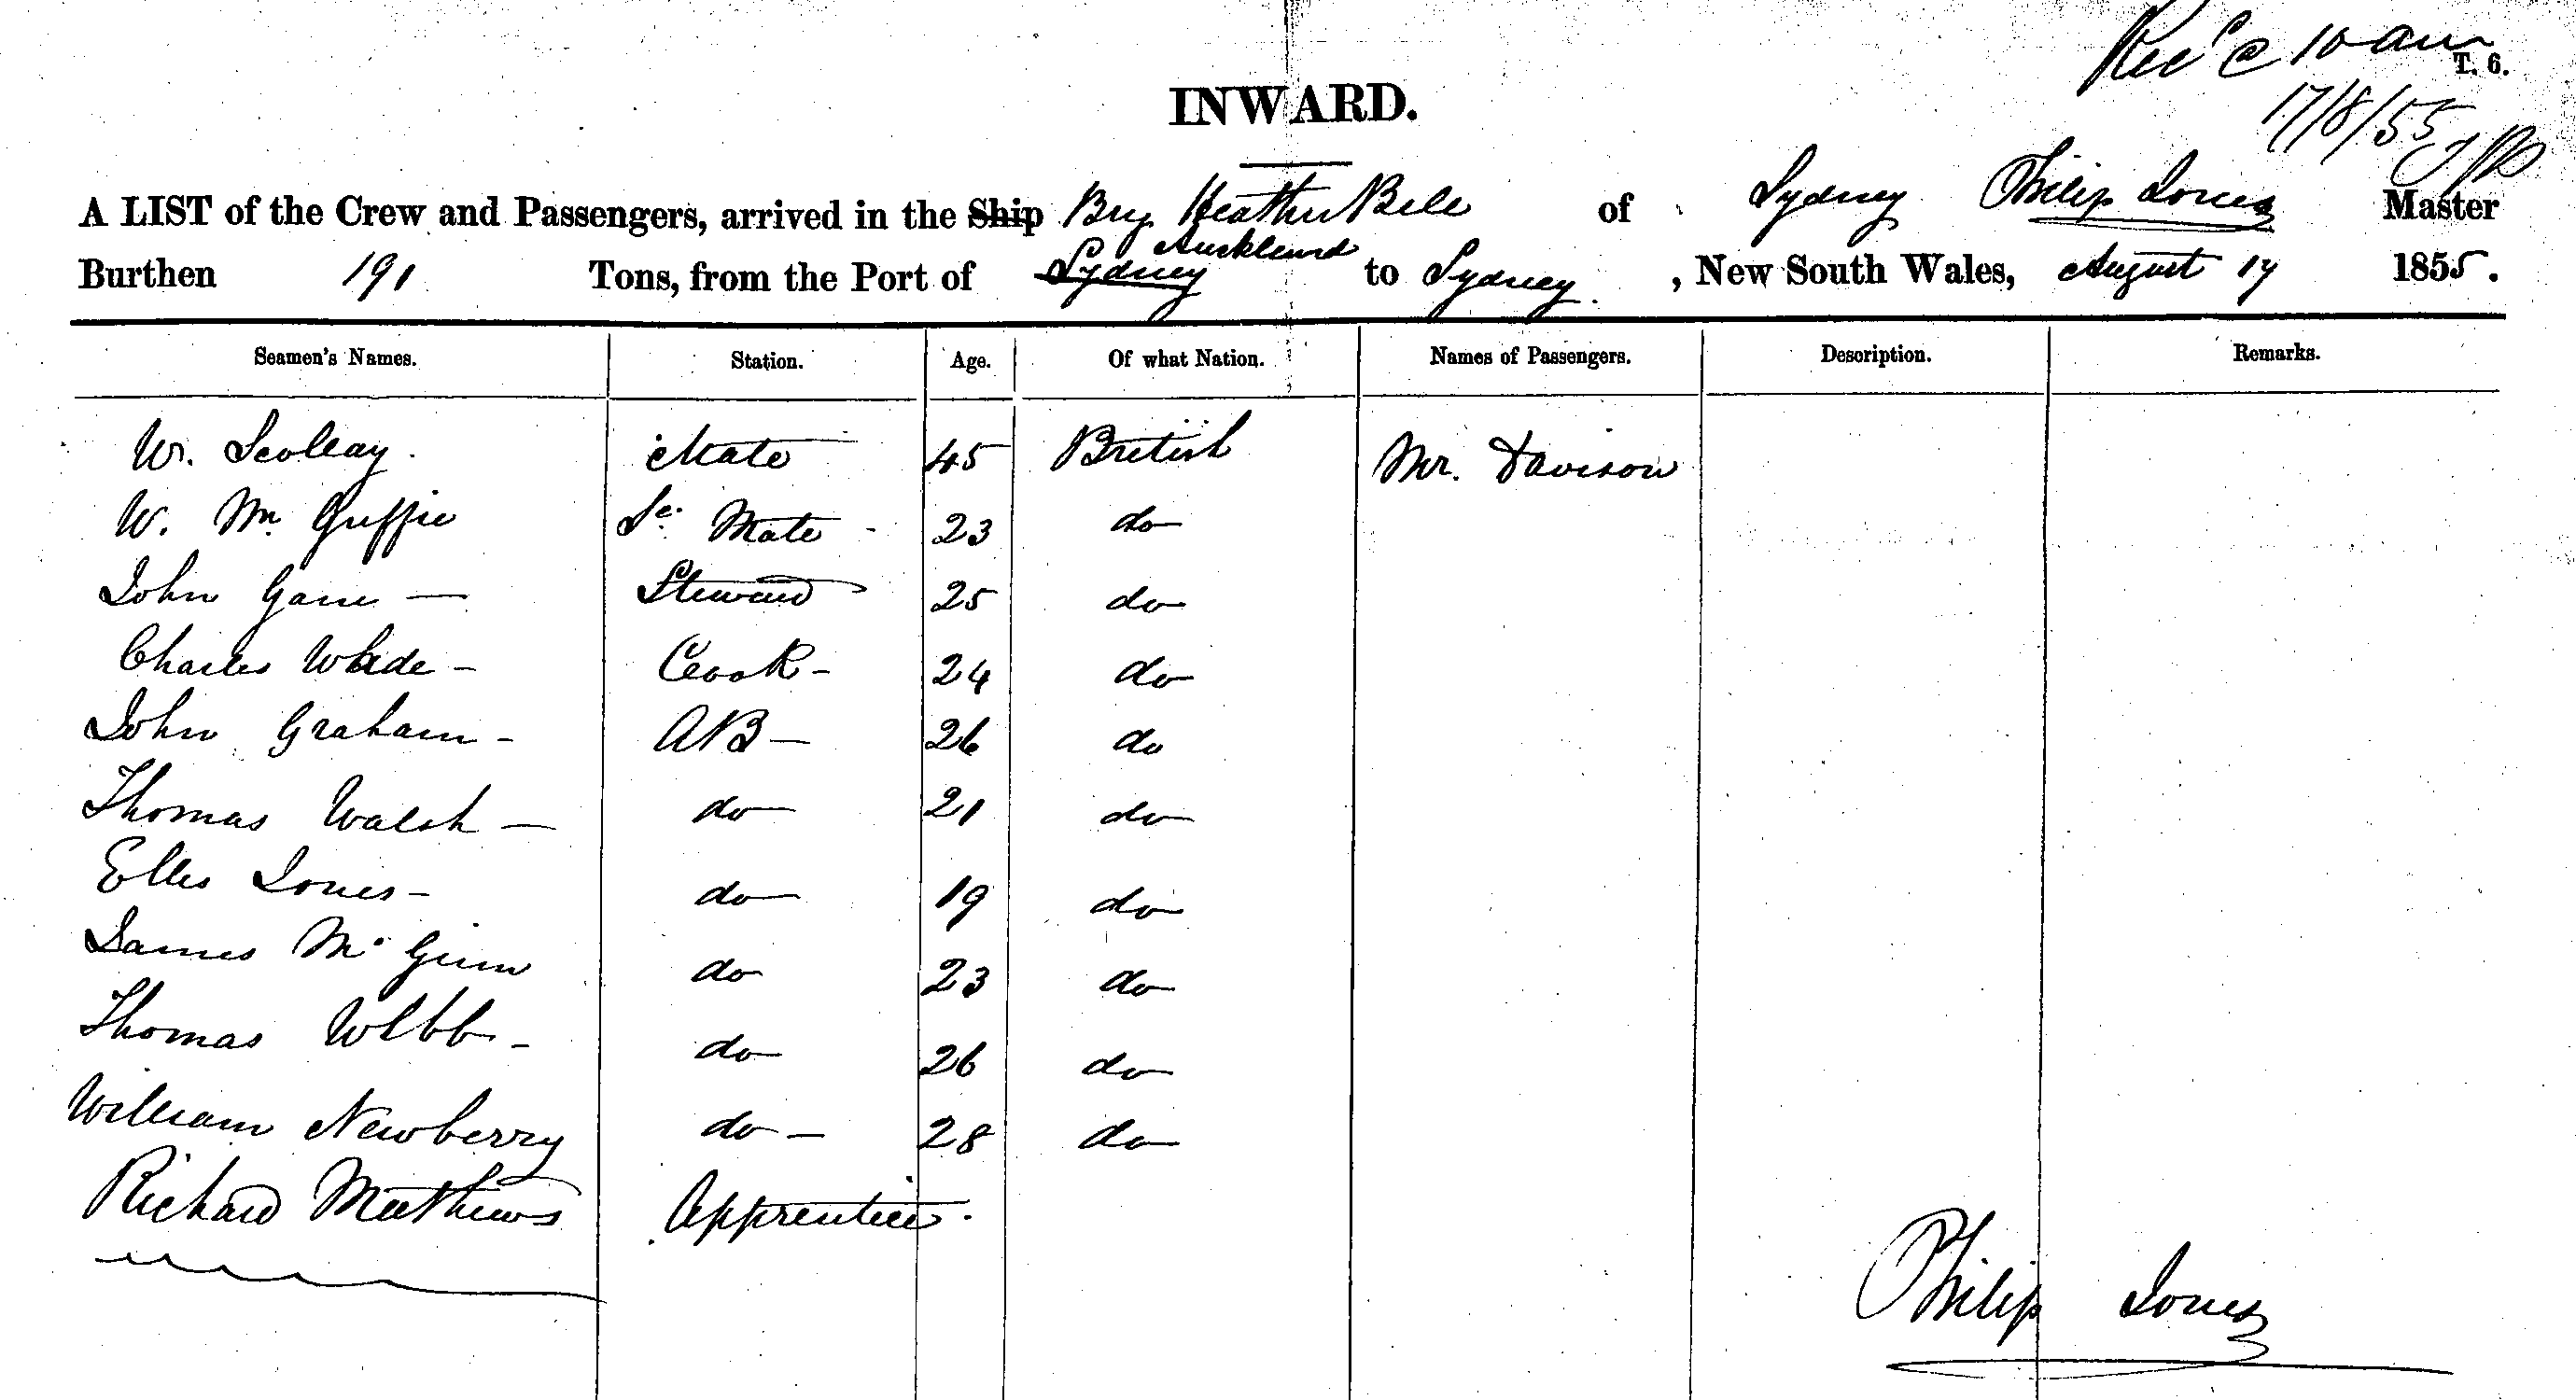 Rec'd @ 10 am
T. 6.
17/8/55
INWARD.
A LIST of the Crew and Passengers, arrived in the Ship Brig Heather Bell of Sydney Philip Jones Master
Burthen 191 Tons, from the Port of Sydney Auckland to Sydney. , New South Wales, August 17 1855.
Seamen's Names. Station. Age. Of what Nation. Names of Passengers. Description. Remarks.
W. Scollay. Mate 45 British Mr. Davison
W. Mc Guffie Se. Mate - 23 do
John Gane — Steward 25 do
Charles Wade - Cook - 24 do
John Graham - AB — 26 do
Thomas Walsh — do 21 do
Elles Jones - do 19 do
James Mc Ginn do 23 do
Thomas Webb - do 26 do
William Newberry do - 28 do
Richard Matthews Apprentice.
Philip Jones